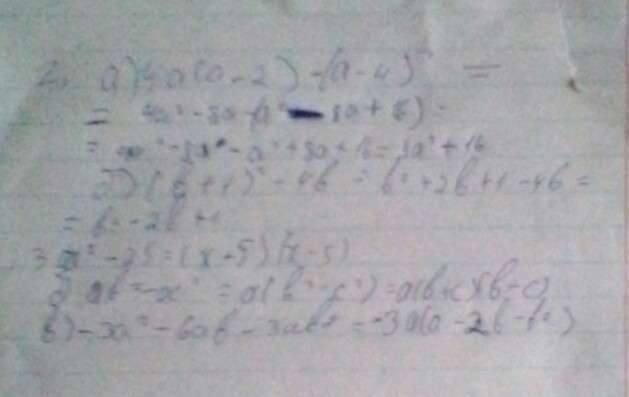 2. а) 4a(a-2) - (a-4)² =
= 4a² - 8a - (a² - 8a + 16) =
= 4a² - 8a - a² + 8a + 16 = 3a² + 16
б) (b+1)² - 4b = b² + 2b + 1 - 4b =
= b² - 2b + 1
3. x² - 25 = (x-5)(x-5)
б) ab² - = a(b² - c²) = a(b+c)(b-c)
в) -3a² - 6ab - = -3 (a - 2b - b²)